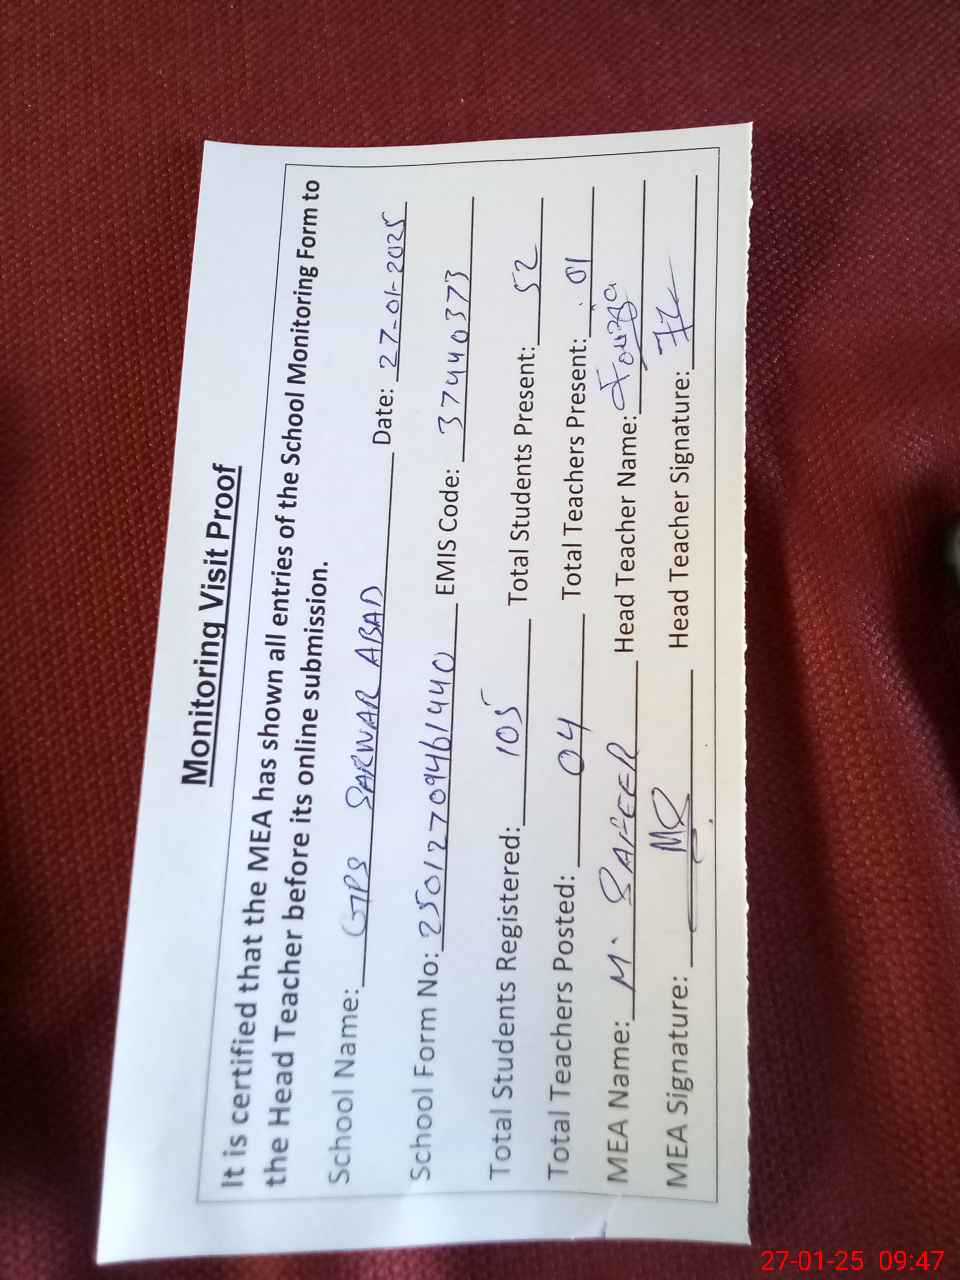 Monitoring Visit Proof
It is certified that the MEA has shown all entries of the School Monitoring Form to
the Head Teacher before its online submission.
School Name: GPS SARWAR ABAD Date: 27-01-2025
School Form No: 25012709461440 EMIS Code: 37440373
Total Students Registered: 105 Total Students Present: 52
Total Teachers Posted: 04 Total Teachers Present: 01
MEA Name: M. SAFEER Head Teacher Name: Fouzia
MEA Signature: Head Teacher Signature:
27-01-25 09:47